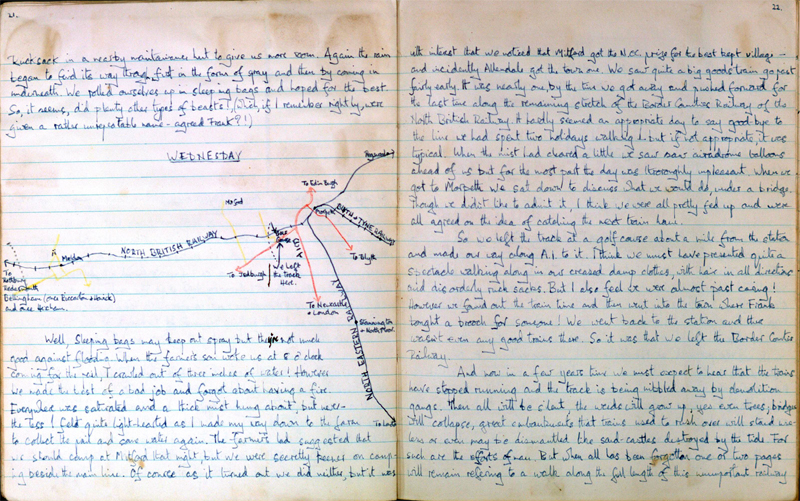 21.
rucksack in a nearby maintainance hut to give us more room. Again the rain
began to find its way through first in the form of spray and then by coming in
underneath. We rolled ourselves up in sleeping bags and hoped for the best.
So, it seems, did plenty other types of beasts! (Which, if I remember rightly, were
given a rather unrepeatable name - agreed Frank?!)
WEDNESDAY
To Edinburgh
Mitford
Morpeth
BLYTH & TYNE RAILWAY
NORTH BRITISH RAILWAY
Meldon
A1
To Blyth
To Rothbury
To Jedburgh
We Left
the Track
Here.
Bellingham (once Riccarton & Hawick)
and once Hexham.
To Newcastle
& London
NORTH EASTERN RAILWAY
Stannington
To London
Well, sleeping bags may keep out spray but they're not much
good against flooding. When the farmer's son woke us at 8 o'clock
coming for the pail, I crawled out of three inches of water! However
we made the best of a bad job and forgot about having a fire.
Everywhere was saturated and a thick mist hung about, but never-
the-less I felt quite light-hearted as I made my way down to the farm
to collect the pail and some water again. The farmer had suggested that
we should camp at Mitford that night, but we were secretly keener on camp-
ing beside the main line. Of course as it turned out we did neither, but it was
22.
with interest that we noticed that Mitford got the N.C.C. prize for the best kept village -
and incidently Allendale got the town one. We saw quite a big goods train go past
fairly early. It was nearly one, by the time we got away and pushed forward for
the last time along the remaining stretch of the Border Counties Railway of the
North British Railway. It hardly seemed an appropriate day to say good bye to
the line we had spent two holidays walking but if not appropriate, it was
typical. When the mist had cleared a little we saw some aerodrome balloons
ahead of us but for the most part the day was thoroughly unpleasant. When we
got to Morpeth we sat down to discuss what we would do, under a bridge.
Though we didn't like to admit it, I think we were all pretty fed up and were
all agreed on the idea of catching the next train home.
So we left the track at a golf course about a mile from the station
and made our way along A.1. to it. I think we must have presented quite a
spectacle walking along in our creased damp clothes, with hair in all directions
and disorderly ruck sacks. But I also feel we were almost past caring!
However we found out the train time and then went into the town. There Frank
bought a brooch for someone! We went back to the station and there
wasn't even any good trains there. So it was that we left the Border Counties
Railway.
And now in a few years time we must expect to hear that the trains
have stopped running and the track is being nibbled away by demolition
gangs. Then all will be silent, the weeds will grow up, yes even trees; bridges
will collapse, great embankments that trains used to rush over will stand use-
less or even may be dismantled like sand castles destroyed by the tide. For
such are the efforts of men. But when all has been forgotten one or two pages
will remain refering to a walk along the full length of this unimportant railway